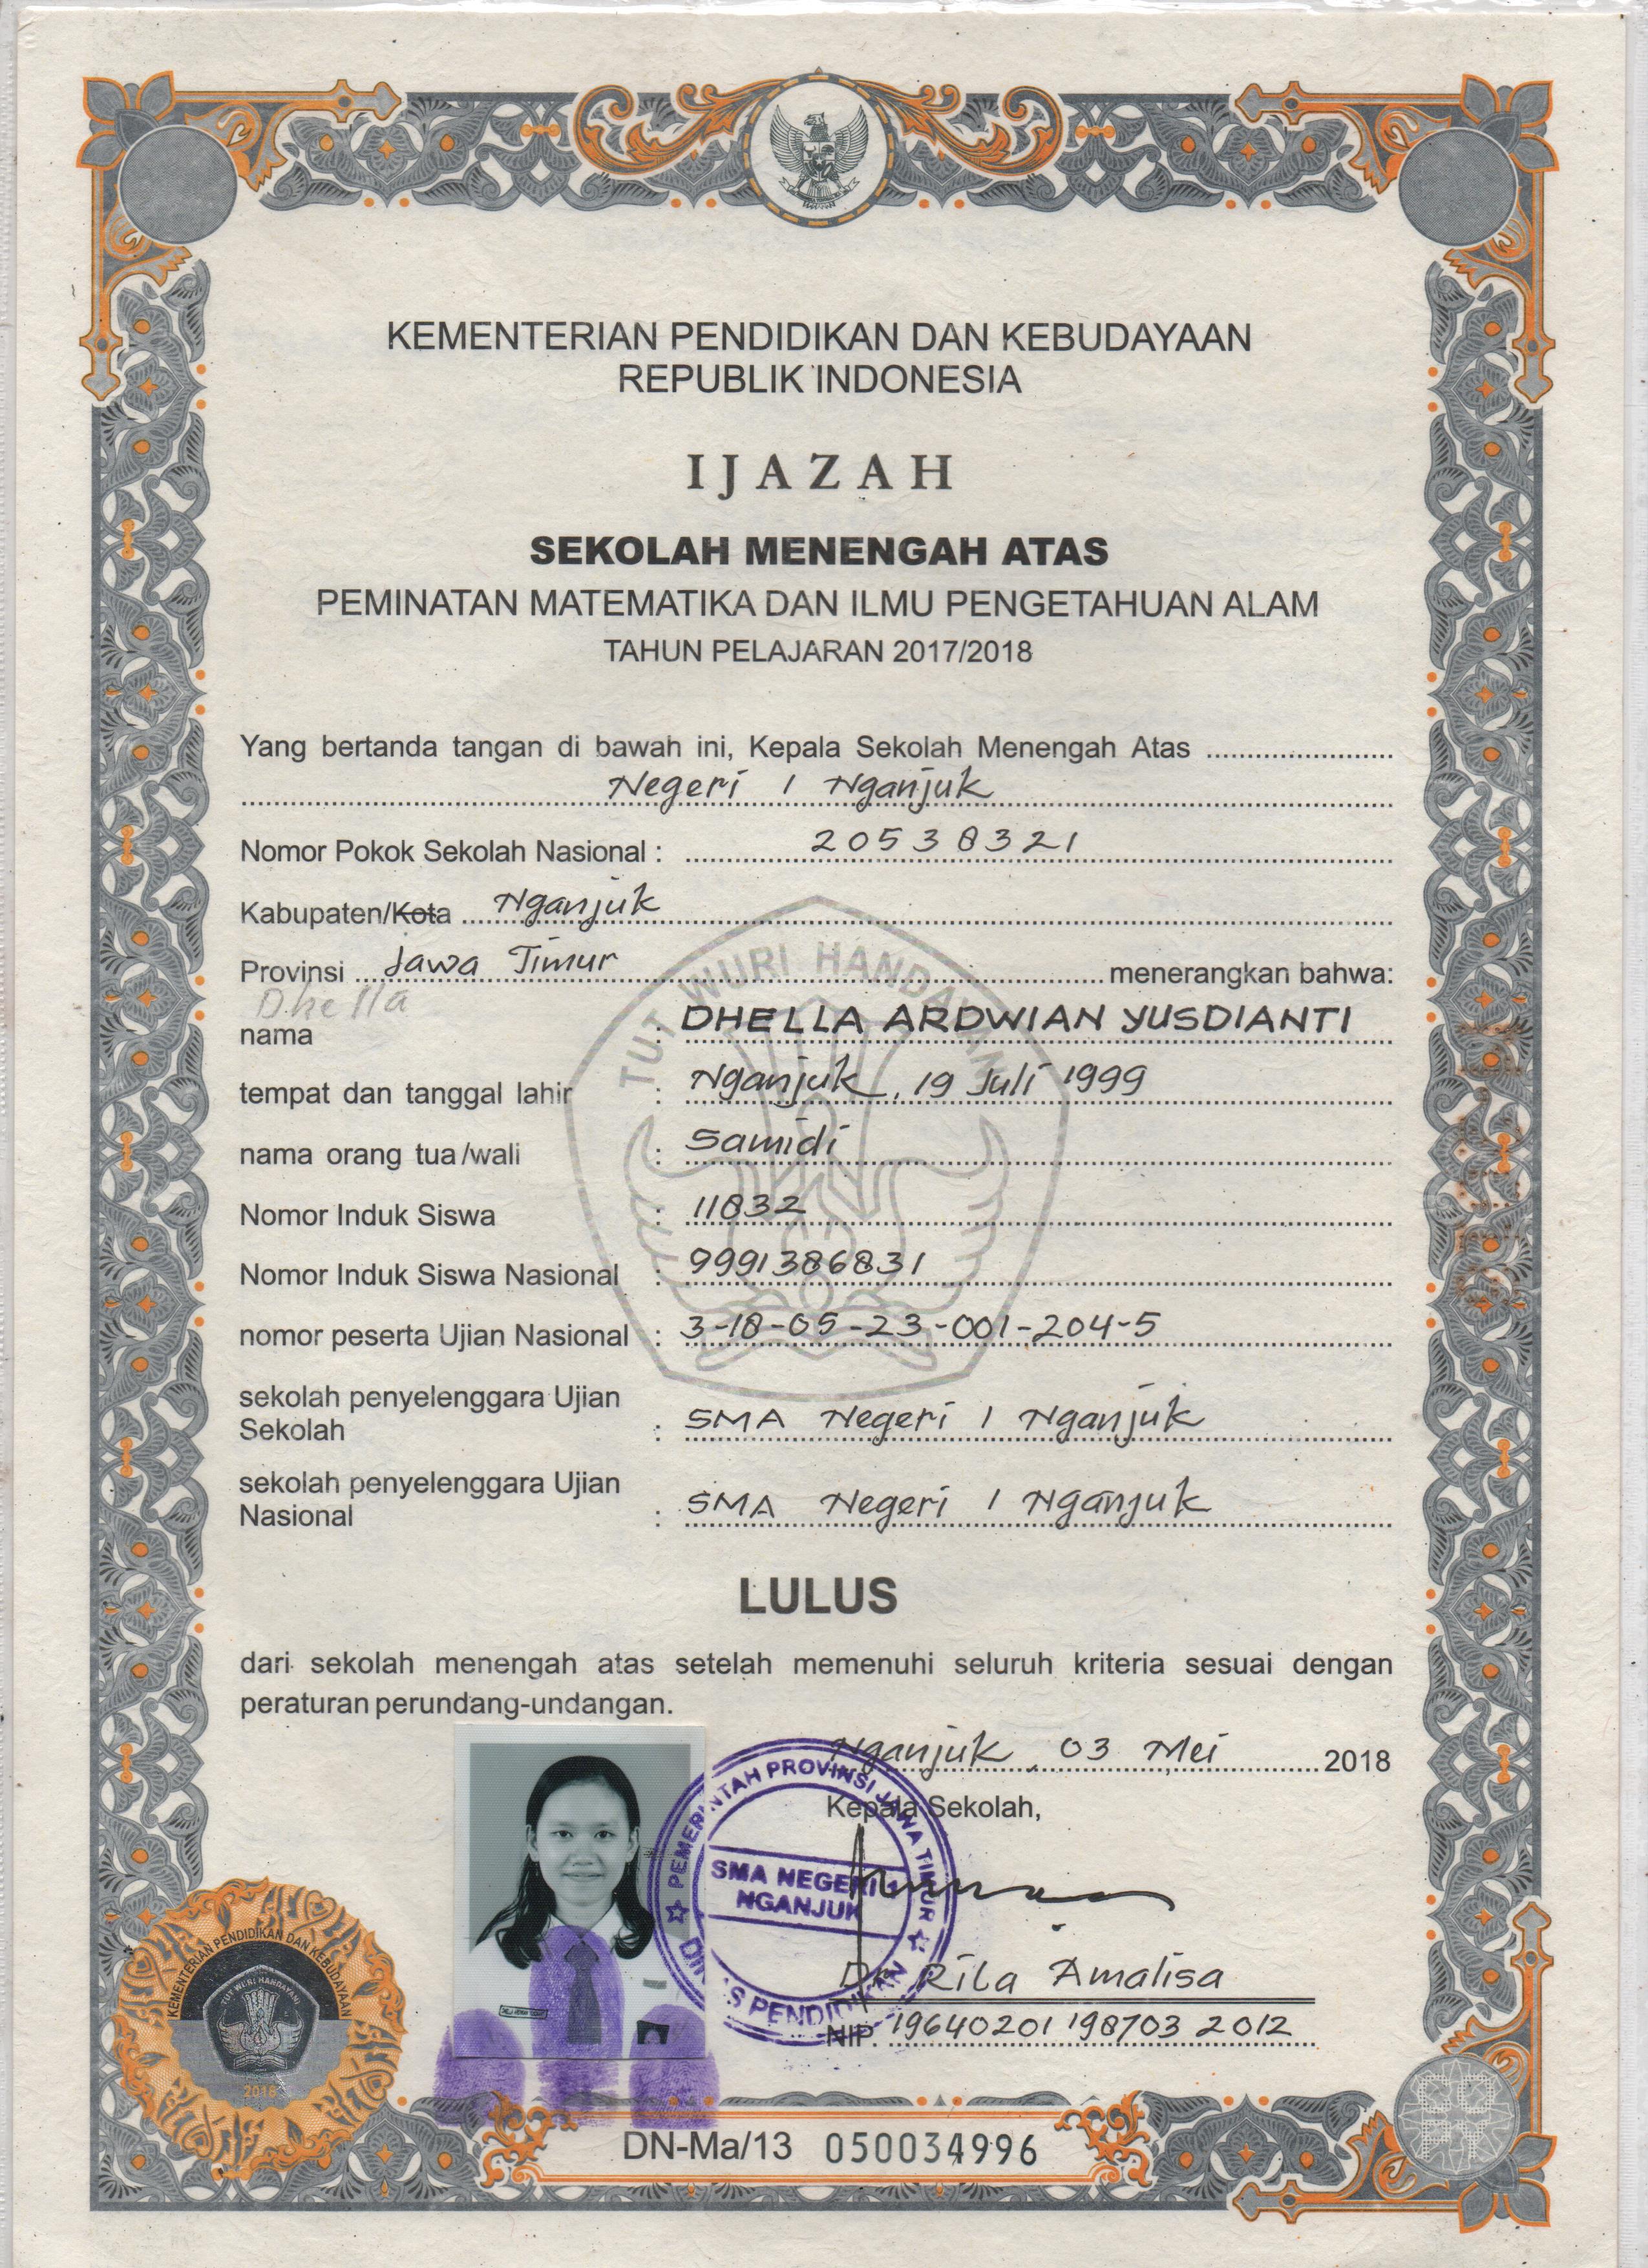 KEMENTERIAN PENDIDIKAN DAN KEBUDAYAAN
REPUBLIK INDONESIA
IJAZAH
SEKOLAH MENENGAH ATAS
PEMINATAN MATEMATIKA DAN ILMU PENGETAHUAN ALAM
TAHUN PELAJARAN 2017/2018
Yang bertanda tangan di bawah ini, Kepala Sekolah Menengah Atas
Negeri 1 Nganjuk
Nomor Pokok Sekolah Nasional : 20538321
Kabupaten/Kota Nganjuk
Provinsi Jawa Timur menerangkan bahwa:
Dhella
nama : DHELLA ARDWIAN YUSDIANTI
tempat dan tanggal lahir : Nganjuk, 19 Juli 1999
nama orang tua/wali : Samidi
Nomor Induk Siswa : 11832
Nomor Induk Siswa Nasional : 9991386831
nomor peserta Ujian Nasional : 3-18-05-23-001-204-5
sekolah penyelenggara Ujian
Sekolah : SMA Negeri 1 Nganjuk
sekolah penyelenggara Ujian
Nasional : SMA Negeri 1 Nganjuk
TUT WURI HANDAYANI
LULUS
dari sekolah menengah atas setelah memenuhi seluruh kriteria sesuai dengan
peraturan perundang-undangan.
Nganjuk, 03 Mei 2018
Kepala Sekolah,
PEMERINTAH PROVINSI JAWA TIMUR
SMA NEGERI 1
NGANJUK
DINAS PENDIDIKAN
Rila Amalisa
NIP. 19640201 198703 2 012
KEMENTERIAN PENDIDIKAN DAN KEBUDAYAAN
TUT WURI HANDAYANI
2018
DN-Ma/13 050034996